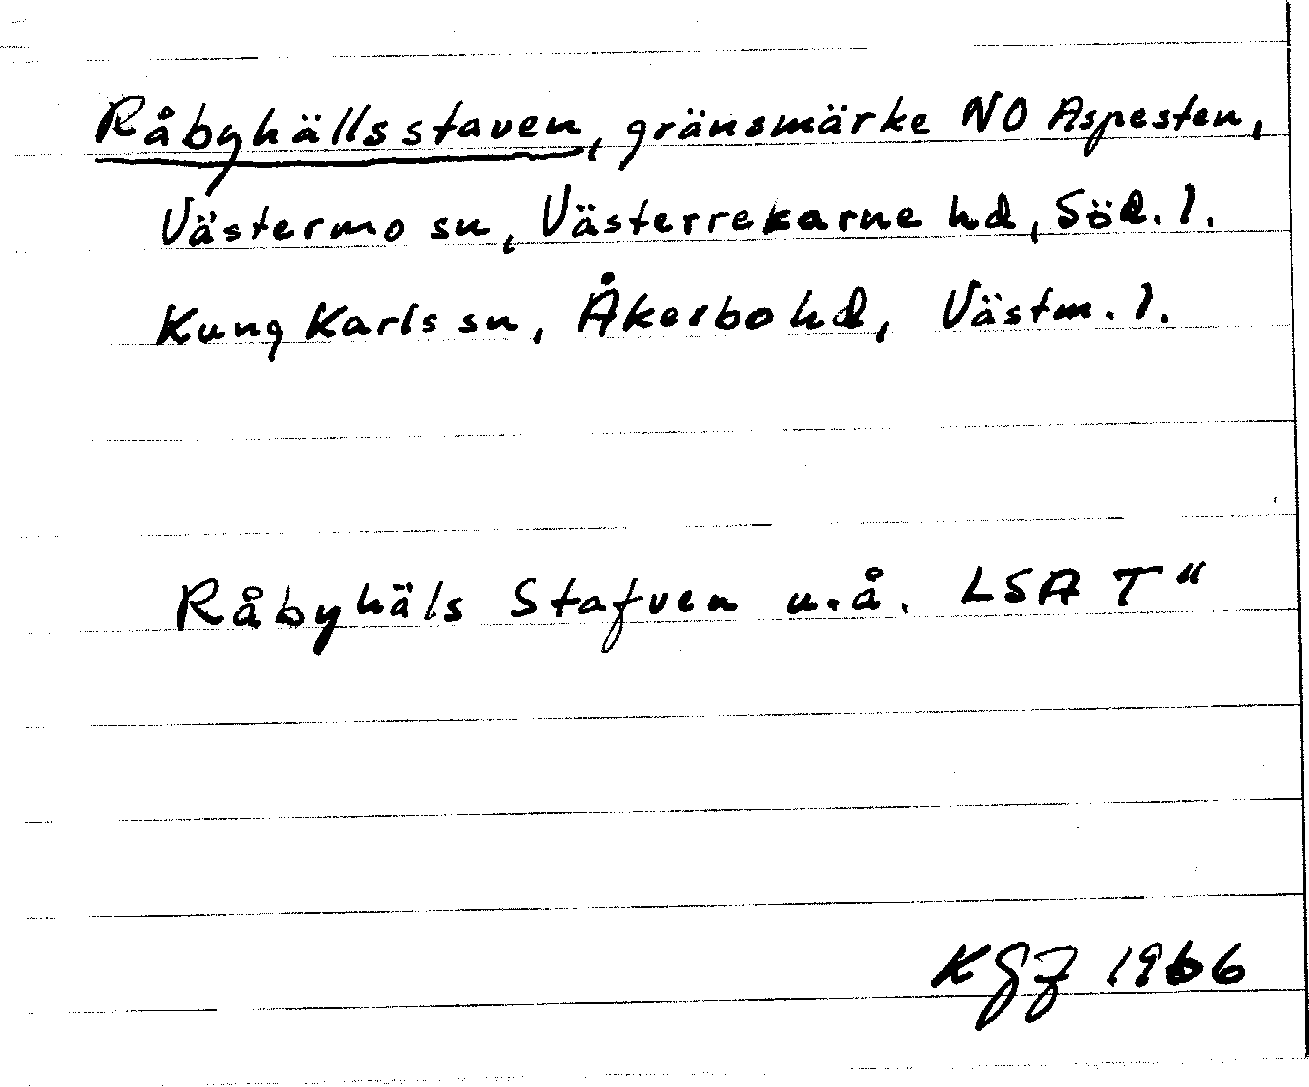 Råbyhällsstaven, gränsmärke NO Aspesten,
Västermo sn, Västerrekarne hd, Söd. l.
Kung Karls sn, Åkerbo hd, Västm. l.
Råbyhäls Stafven u.å. LSA T"
KGJ 1966